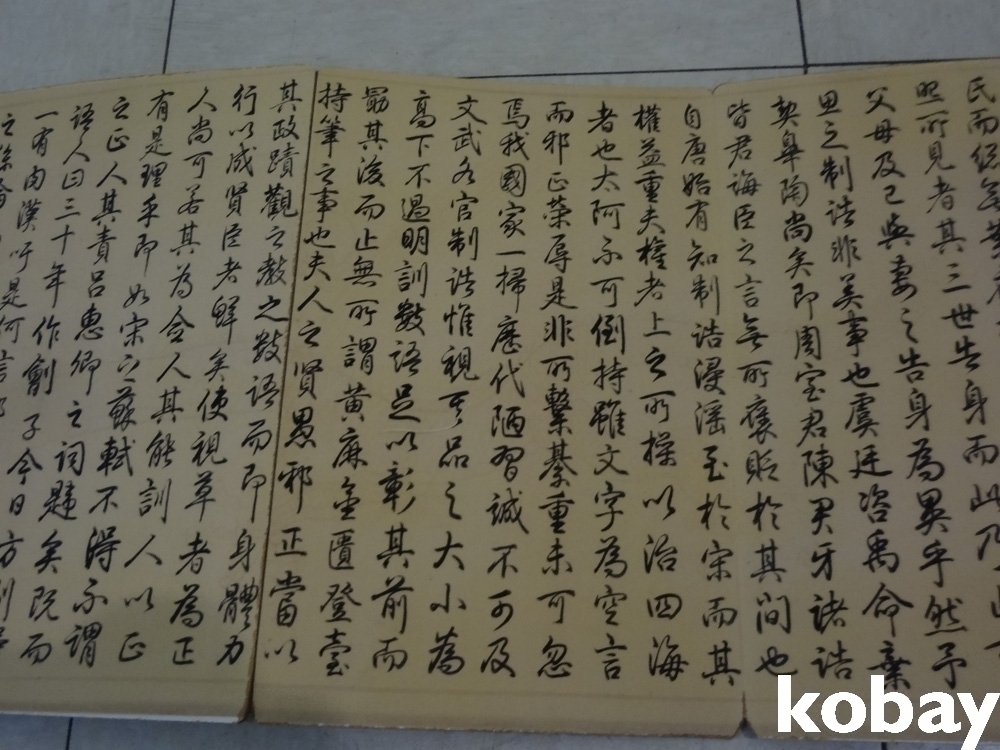 照所見者其三世告身而
父母及己與妻之告身為異乎然予
思之制誥非美事也虞廷咨禹命棄
契皐陶尚矣即周室君陳君牙諸誥
皆君誨臣之言無所褒貶於其間也
自唐始有知制誥浸淫至於宋而其
權益重夫權者上之所操以治四海
者也太阿不可倒持雖文字為空言
而邪正榮辱是非所繫綦重未可忽
焉我國家一掃歷代陋習誠不可及
文武各官制誥惟視其品之大小為
高下不過明訓數語足以彰其前而
勗其後而止無所謂黃麻金匱登臺
持筆之事也夫人之賢愚邪正當以
其政蹟觀之教之數語而即身體力
行以成賢臣者鮮矣使視草者為正
人尚可若其為僉人其能訓人以正
有是理乎即如宋之蘇軾不得不謂
之正人其責呂惠卿之詞韙矣既而
語人曰三十年作劊子今日方
一有肉漢吁是何言
kobay